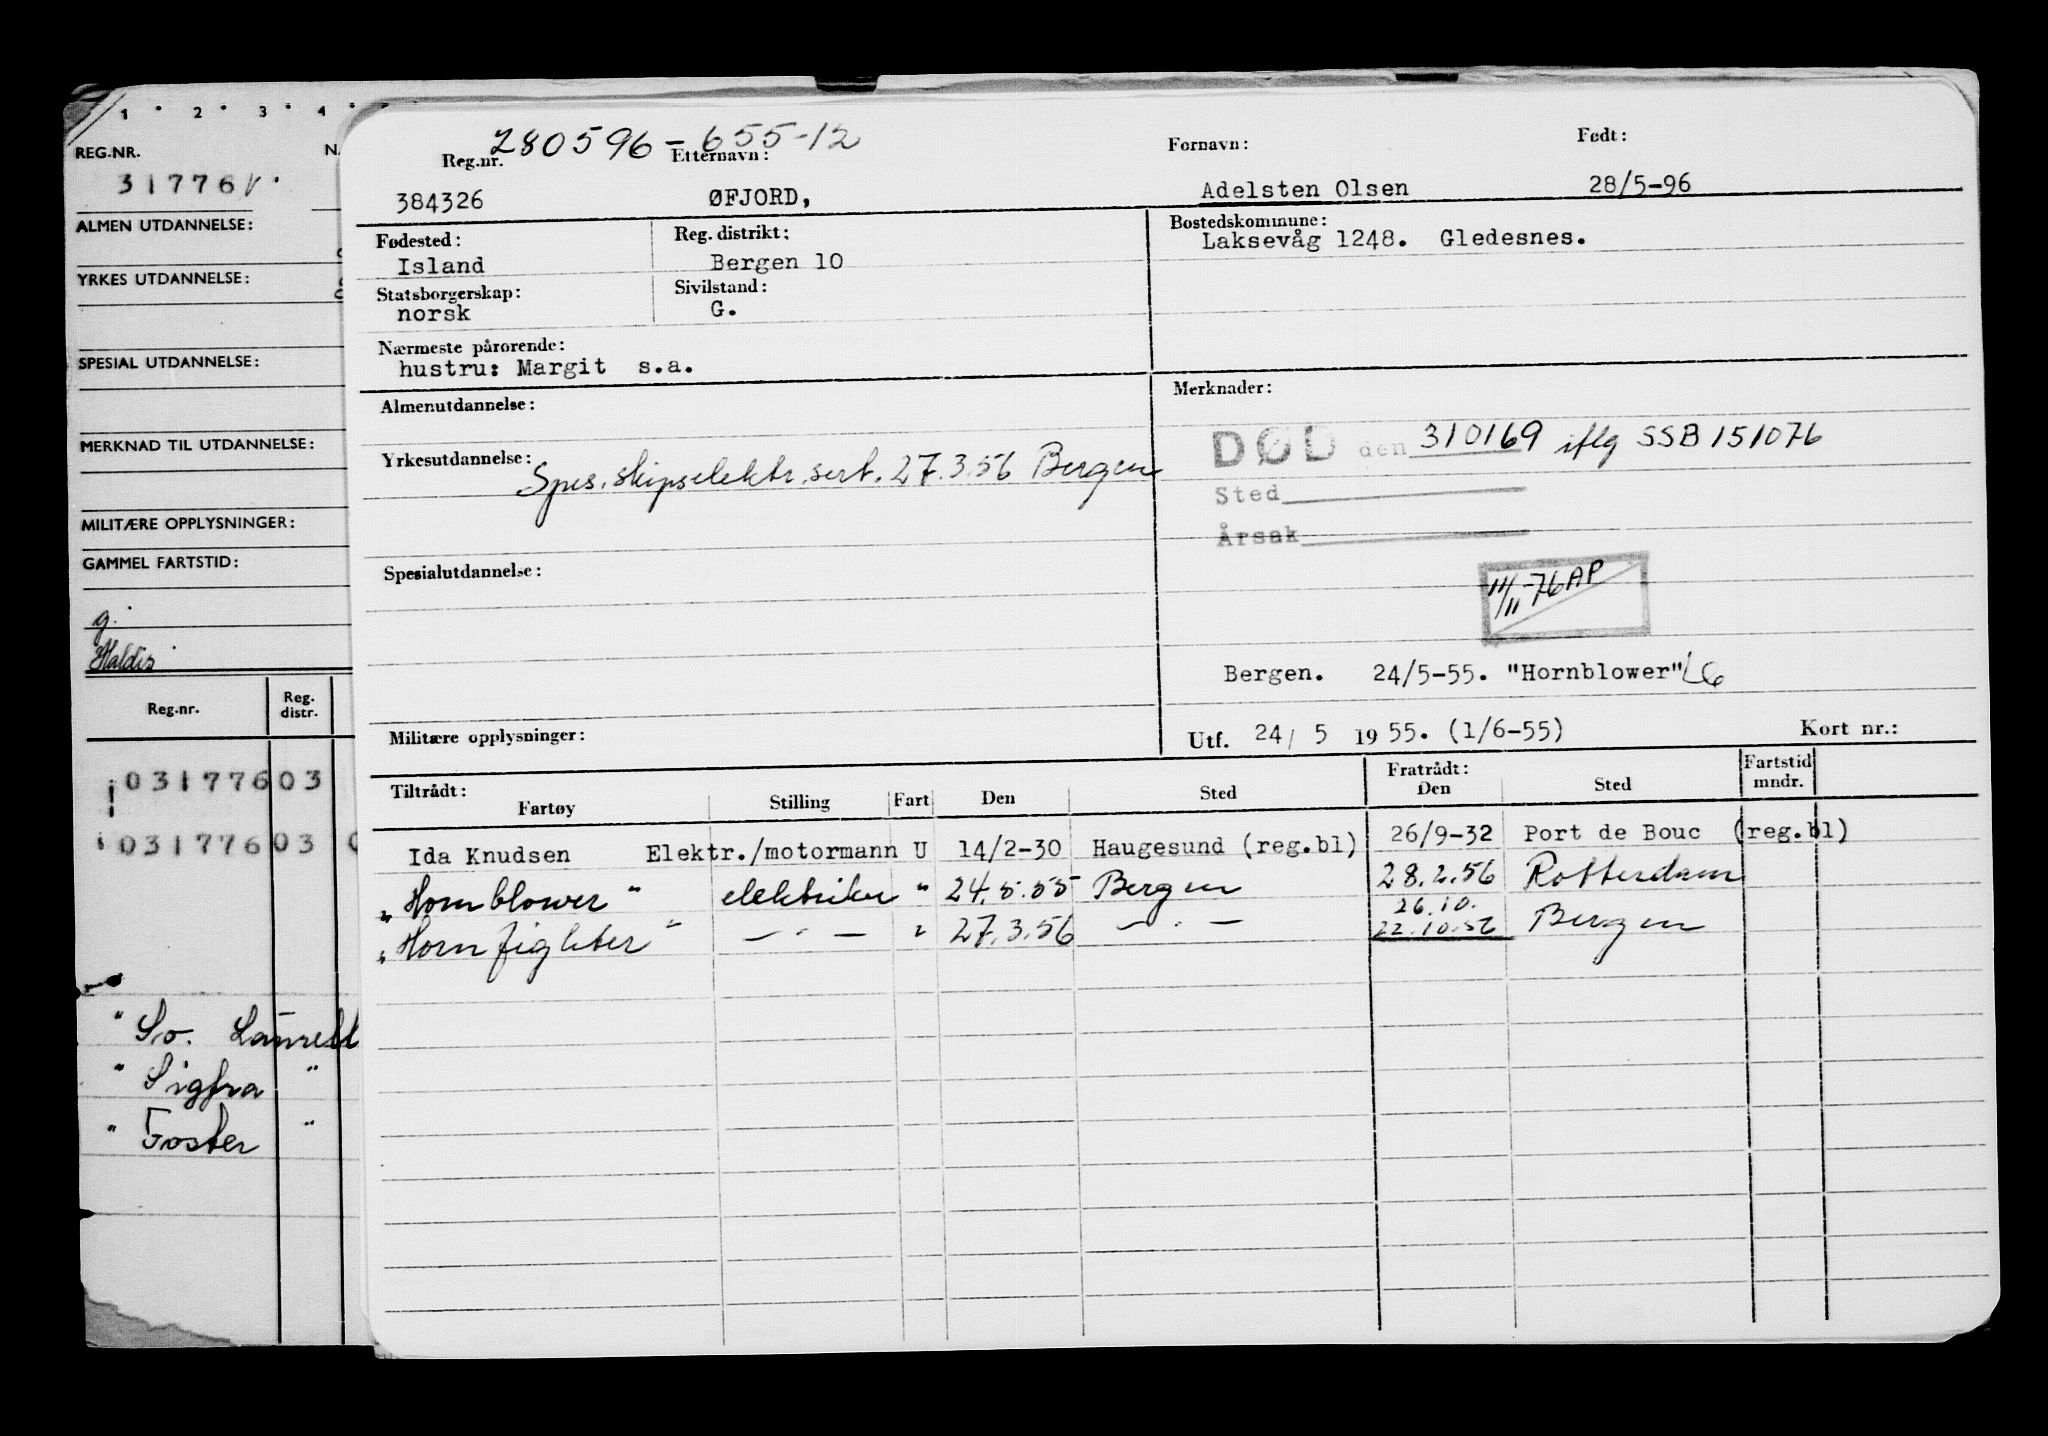 1 · 2 · 3 · 4 ·
REG.NR.
31776
ALMEN UTDANNELSE:
YRKES UTDANNELSE:
SPESIAL UTDANNELSE:
MERKNAD TIL UTDANNELSE:
MILITÆRE OPPLYSNINGER:
GAMMEL FARTSTID:
g.
Haldis
Reg.nr. Reg. distr.
03177603
03177603
" So.
" Sigfra "
" Foster "
280596-655-12
Reg.nr. Etternavn: Fornavn: Født:
384326 ØFJORD, Adelsten Olsen 28/5-96
Fødested: Reg. distrikt: Bostedskommune:
Island Bergen 10 Laksevåg 1248. Gledesnes.
Statsborgerskap: Sivilstand:
norsk G.
Nærmeste pårørende:
hustru: Margit s.a.
Almenutdannelse: Merknader:
DØD den 310169 iflg SSB 151076
Yrkesutdannelse: Spes. skipselektr. sert. 27.3.56 Bergen
Sted
Årsak
Spesialutdannelse:
11/11-76 AP
Bergen. 24/5-55. "Hornblower" LG
Militære opplysninger: Utf. 24/ 5 1955. (1/6-55) Kort nr.:
Tiltrådt: Fratrådt: Fartstid
Fartøy Stilling Fart Den Sted Den Sted mndr.
Ida Knudsen Elektr./motormann U 14/2-30 Haugesund (reg.bl) 26/9-32 Port de Bouc (reg.bl)
"Hornblower" elektriker " 24.5.55 Bergen 28.2.56 Rotterdam
26.10.
"Hornfighter" — · — " 27.3.56 — · — 22.10.56 Bergen